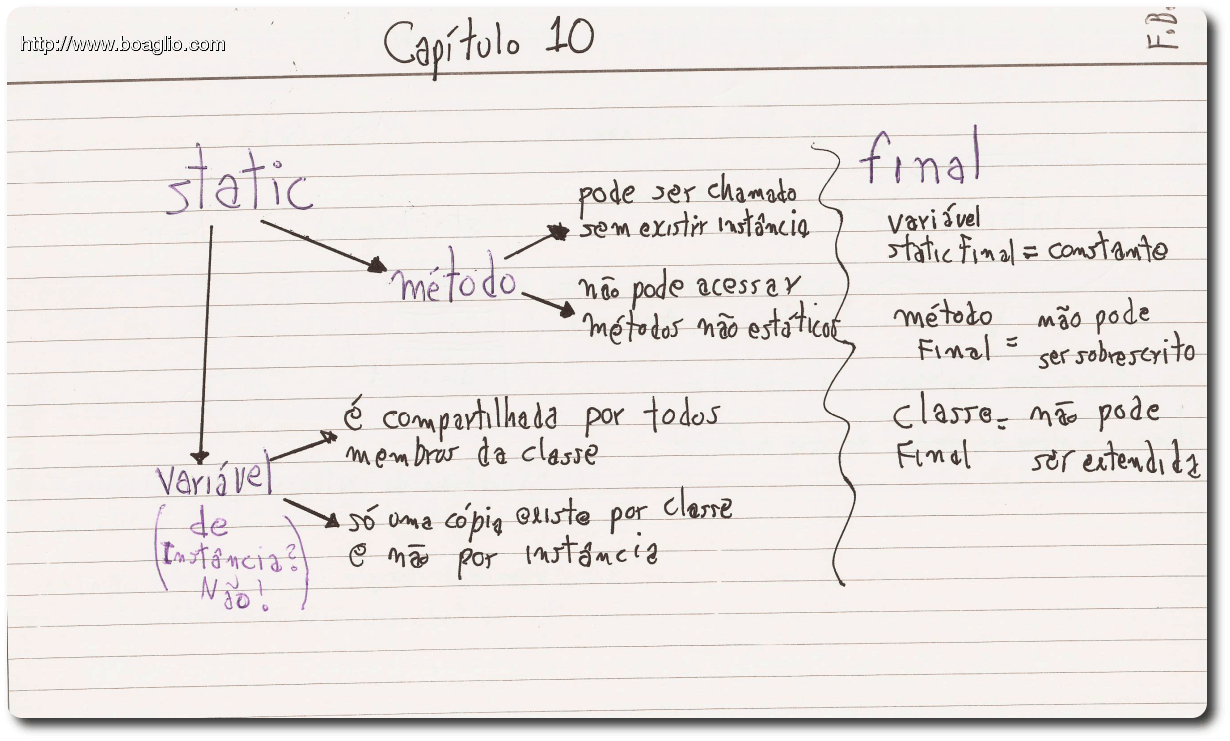 http://www.boaglio.com
Capítulo 10
F.B.
static
método
pode ser chamado
sem existir instância
não pode acessar
métodos não estáticos
variável
(de
Instância?
Não!)
é compartilhada por todos
membros da classe
só uma cópia existe por classe
e não por instância
final
variável
static final = constante
método final = não pode
ser sobrescrito
classe final = não pode
ser extendida